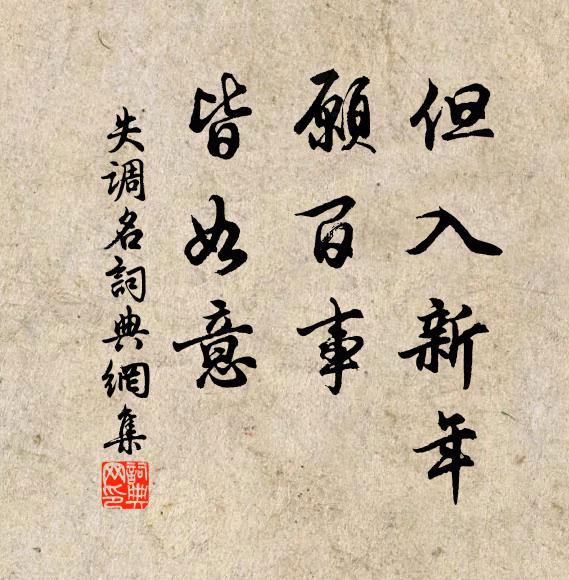 但入新年
願百事
皆如意
失调名詞典網集
詞典
网印